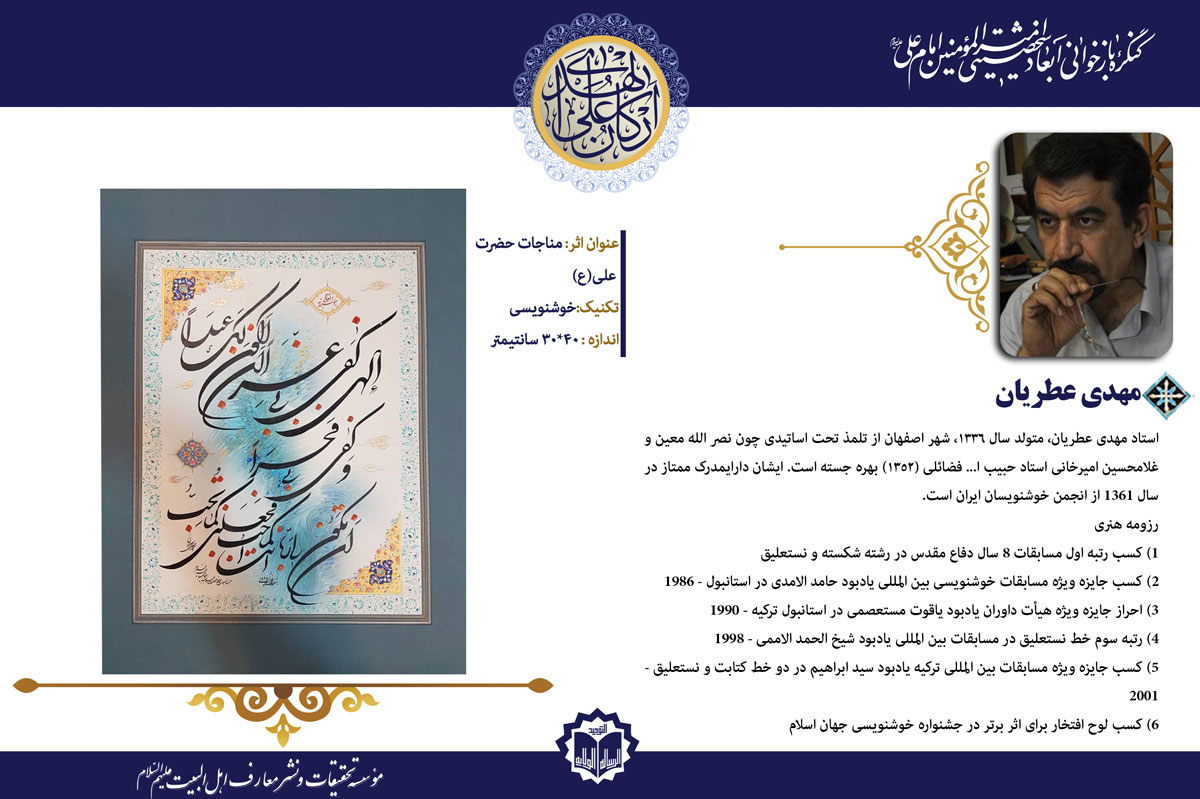 کنگره بازخوانی ابعاد شخصیتی امیرالمؤمنین امام علی علیه‌السلام
ارکان الهدی علی
عنوان اثر: مناجات حضرت
علی(ع)
تکنیک:خوشنویسی
اندازه : ۴۰*۳۰ سانتیمتر
الهی کفی بی عزا ان اکون لک عبدا
و کفی بی فخرا
ان تکون لی ربا
انت کما احب فاجعلنی کما تحب
مهدی عطریان
استاد مهدی عطریان، متولد سال ۱۳۳۶، شهر اصفهان از تلمذ تحت اساتیدی چون نصر الله معین و
غلامحسین امیرخانی استاد حبیب ا... فضائلی (۱۳۵۲) بهره جسته است. ایشان دارایمدرک ممتاز در
سال 1361 از انجمن خوشنویسان ایران است.
رزومه هنری
1) کسب رتبه اول مسابقات 8 سال دفاع مقدس در رشته شکسته و نستعلیق
2) کسب جایزه ویژه مسابقات خوشنویسی بین المللی یادبود حامد الامدی در استانبول - 1986
3) احراز جایزه ویژه هیأت داوران یادبود یاقوت مستعصمی در استانبول ترکیه - 1990
4) رتبه سوم خط نستعلیق در مسابقات بین المللی یادبود شیخ الحمد الاممی - 1998
5) کسب جایزه ویژه مسابقات بین المللی ترکیه یادبود سید ابراهیم در دو خط کتابت و نستعلیق -
2001
6) کسب لوح افتخار برای اثر برتر در جشنواره خوشنویسی جهان اسلام
التوحید
الرساله الولایه
مؤسسه تحقیقات و نشر معارف اهل البیت علیهم السلام